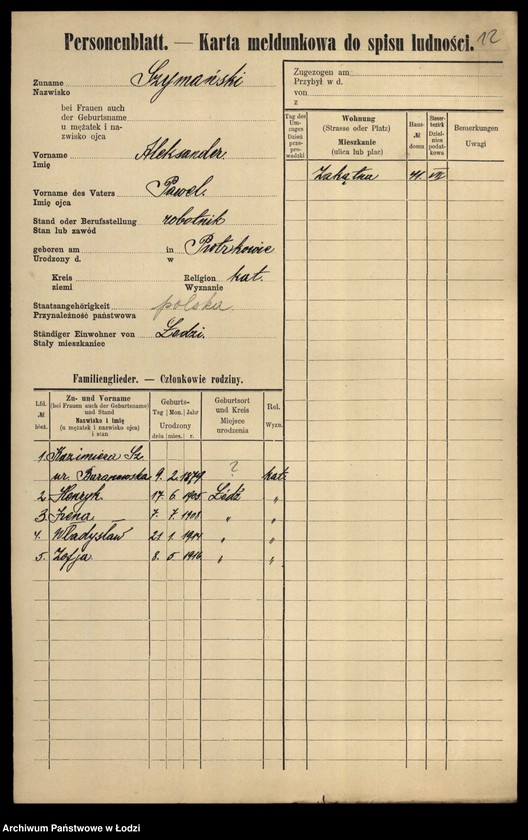 12
Personenblatt. — Karta meldunkowa do spisu ludności.
Zuname Szymański
Nazwisko
bei Frauen auch
der Geburtsname
u mężatek i na-
zwisko ojca
Vorname Aleksander
Imię
Vorname des Vaters Paweł
Imię ojca
Stand oder Berufsstellung robotnik
Stan lub zawód
geboren am in Piotrkowie
Urodzony d. w
Kreis Religion kat.
ziemi Wyznanie
Staatsangehörigkeit polska.
Przynależność państwowa
Ständiger Einwohner von Łodzi.
Stały mieszkaniec
Zugezogen am
Przybył w d.
von
z
Tag des Um-zuges Dzień prze-prowadzki
Wohnung (Strasse oder Platz) Mieszkanie (ulica lub plac)
Haus-№ domu
Steuer-bezirk Dziel-nica podat-kowa
Bemerkungen Uwagi
Zakątna 41. VII
Familienglieder. — Członkowie rodziny.
Lfd. № bież.
Zu- und Vorname (bei Frauen auch der Geburtsname) und Stand Nazwisko i imię (u mężatek i nazwisko ojca) i stan
Geburts- Tag Mon. Jahr Urodzony dnia mies. r.
Geburtsort und Kreis Miejsce urodzenia
Rel. Wyzn.
1. Kazimiera Sz.
ur. Baranowska 9. 2. 1879 ? kat.
2. Henryk. 17. 6 1905 Łódź "
3. Irena 7. 7. 1908 " "
4. Władysław 21 1. 1914 " "
5. Zofja. 8. 5 1916 " "
Archiwum Państwowe w Łodzi